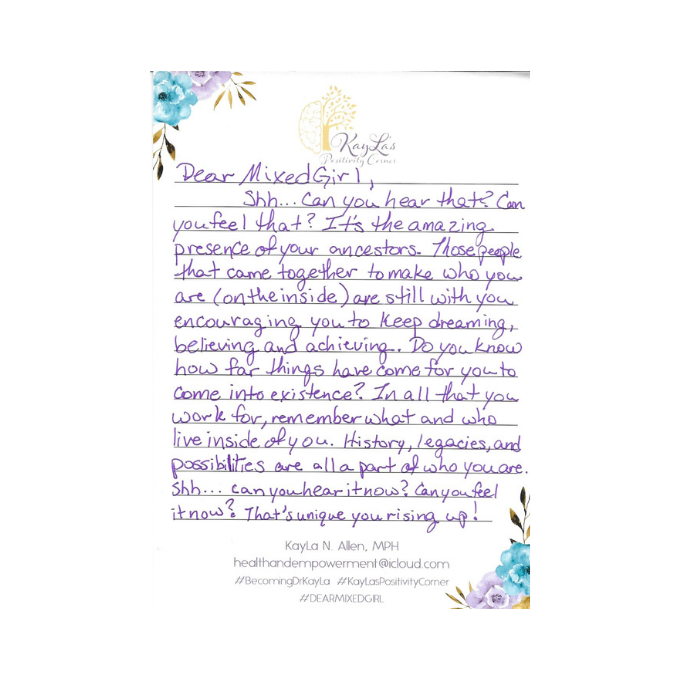 KayLa's
Positivity Corner
Dear MixedGirl,
Shh... can you hear that? Can
you feel that? It's the amazing
presence of your ancestors. Those people
that came together to make who you
are (on the inside) are still with you
encouraging you to keep dreaming,
believing and achieving. Do you know
how far things have come for you to
come into existence? In all that you
work for, remember what and who
live inside of you. History, legacies, and
possibilities are all a part of who you are.
Shh... can you hear it now? Can you feel
it now? That's unique you rising up!
KayLa N. Allen, MPH
healthandempowerment@icloud.com
#BecomingDrKayLa #KayLasPositivityCorner
#DEARMIXEDGIRL